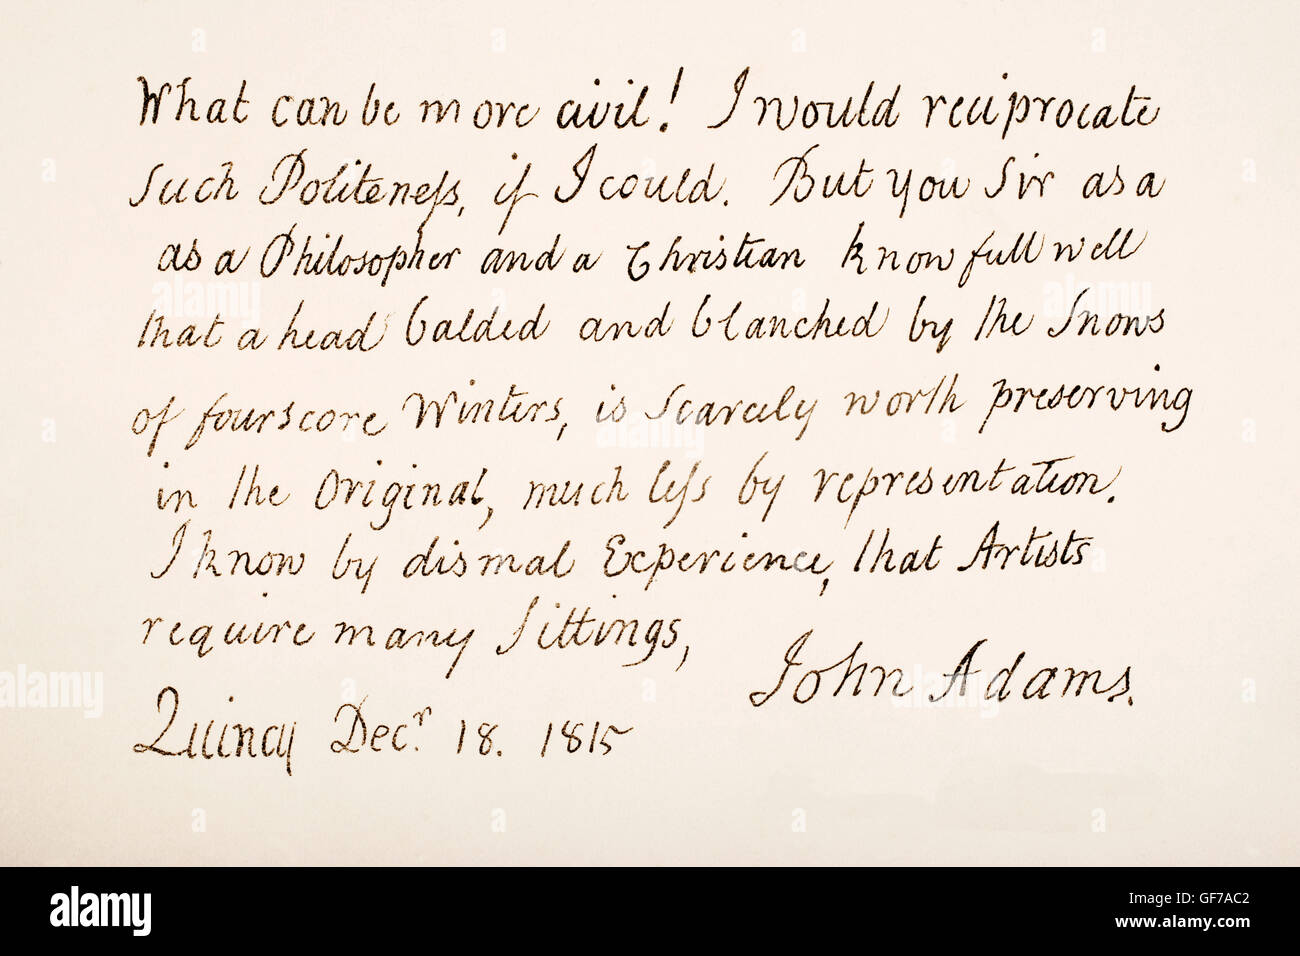 What can be more civil! I would reciprocate
such Politeness, if I could. But you Sir as a
as a Philosopher and a Christian know full well
that a head balded and blanched by the Snows
of fourscore Winters, is scarcely worth preserving
in the Original, much less by representation.
I know by dismal Experience, that Artists
require many Sittings,
John Adams.
Quincy Decr. 18. 1815
alamy
Image ID: GF7AC2
www.alamy.com